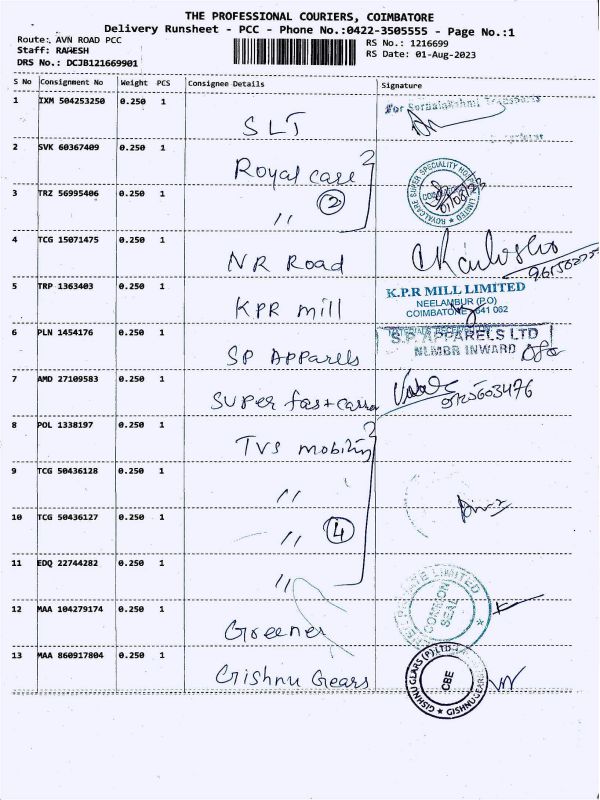 THE PROFESSIONAL COURIERS, COIMBATORE
Delivery Runsheet - PCC - Phone No.:0422-3505555 - Page No.:1
Route: AVN ROAD PCC
Staff: RAJESH
DRS No.: DCJB121669901
RS No.: 1216699
RS Date: 01-Aug-2023
S No Consignment No Weight PCS Consignee Details Signature
1 IXM 504253250 0.250 1 SLT For
2 SVK 60367409 0.250 1 Royal care
3 TRZ 56995406 0.250 1 〃 2 ROYALCARE SUPER SPECIALITY HOSPITAL LIMITED 01/08/23
4 TCG 15071475 0.250 1 NR Road
5 TRP 1363403 0.250 1 KPR mill K.P.R MILL LIMITED
NEELAMBUR (P.O)
COIMBATORE 641 062
6 PLN 1454176 0.250 1 SP Apparels S.P. APPARELS LTD
NLMBR INWARD
7 AMD 27109583 0.250 1 Super fast 9125603476
8 POL 1338197 0.250 1 TVS mobility
9 TCG 50436128 0.250 1 〃
10 TCG 50436127 0.250 1 〃 4
11 EDQ 22744282 0.250 1 〃
12 MAA 104279174 0.250 1 Greener PRIVATE LIMITED COMMON SEAL
13 MAA 860917804 0.250 1 Gishnu Gears GISHNU GEARS (P) LTD CBE